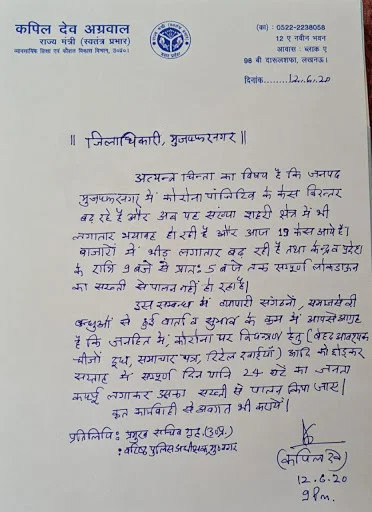 कपिल देव अग्रवाल
राज्य मंत्री (स्वतंत्र प्रभार)
व्यावसायिक शिक्षा एवं कौशल विकास विभाग, उ०प्र०।
(का) : 0522-2238058
12 ए नवीन भवन
आवास : ब्लाक ए
98 बी दारूलशफा, लखनऊ।
दिनांक 12.6.20
॥ जिलाधिकारी, मुजफ्फरनगर ॥
अत्यन्त चिन्ता का विषय है कि जनपद
मुजफ्फरनगर में कोरोना पॉजिटिव के केस निरन्तर
बढ़ रहे हैं और अब यह संख्या शहरी क्षेत्र में भी
लगातार भयावह हो रही है और आज 19 केस आये हैं।
बाजारों में भीड़ लगातार बढ़ रही है तथा केन्द्र व प्रदेश
के रात्रि 9 बजे से प्रातः 5 बजे तक सम्पूर्ण लोकडाउन
का सख्ती से पालन नहीं हो रहा है।
इस सम्बन्ध में व्यापारी संगठनों, समाजसेवी
बन्धुओं से हुई वार्ता व सुझाव के क्रम में आपसे आग्रह
है कि जनहित में, कोरोना पर नियन्त्रण हेतु (बेहद आवश्यक
चीजों दूध, समाचार पत्र, रिटेल दवाईयाँ) आदि को छोड़कर
सप्ताह में सम्पूर्ण दिन यानि 24 घंटे का जनता
कर्फ्यू लगाकर उसका सख्ती से पालन किया जाए।
कृत कार्यवाही से अवगत भी करायें।
प्रतिलिपि : प्रमुख सचिव गृह (उ०प्र०)
: वरिष्ठ पुलिस अधीक्षक मु०नगर
(कपिल देव)
12.6.20
9 P.m.